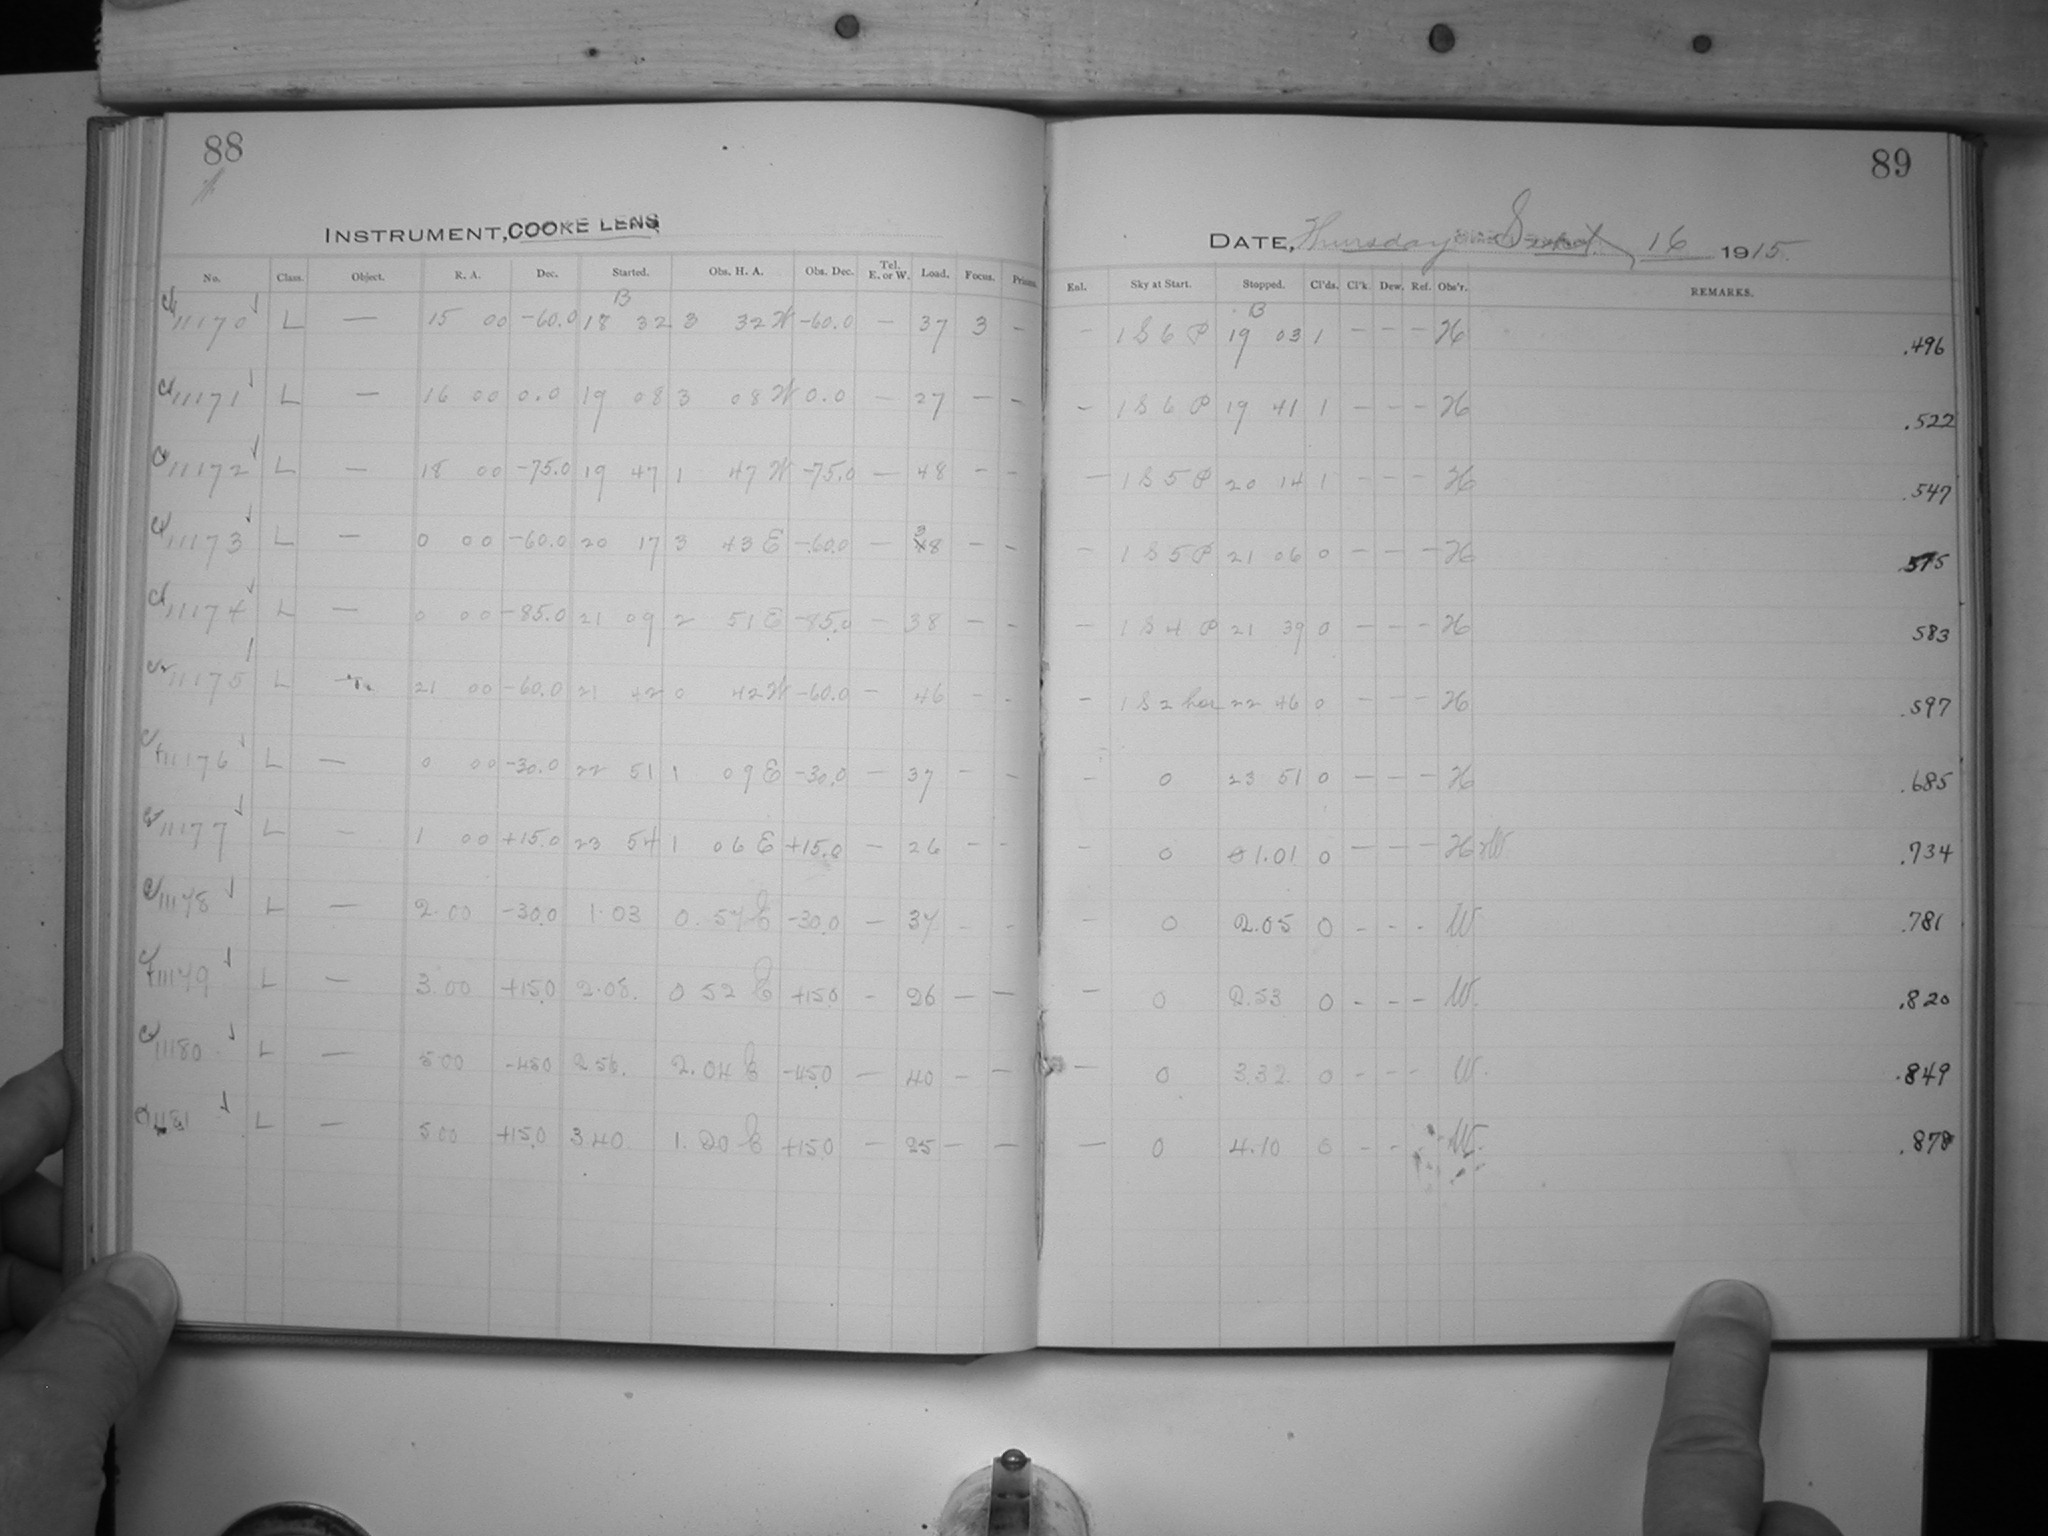 88
89
INSTRUMENT, COOKE LENS
DATE, Thursday Sept. 16 1915.
No. Class. Object. R. A. Dec. Started. Obs. H. A. Obs. Dec. Tel. E. or W. Load. Focus. Prisms. Enl. Sky at Start. Stopped. Cl'ds. Cl'k. Dew. Ref. Obs'r. REMARKS.
B B
11170 L — 15 00 -60.0 18 32 3 32 W -60.0 — 37 3 – – 1 S 6 P 19 03 1 – – – H .496
11171 L — 16 00 0.0 19 08 3 08 W 0.0 — 27 – – – 1 S 6 P 19 41 1 – – – H .522
11172 L — 18 00 -75.0 19 47 1 47 W -75.0 — 48 – – — 1 S 5 P 20 14 1 – – – H .547
11173 L — 0 00 -60.0 20 17 3 43 E -60.0 — 38 – – – 1 S 5 P 21 06 0 – – – H 575
11174 L — 0 00 -85.0 21 09 2 51 E -85.0 — 38 – – – 1 S 4 P 21 39 0 – – – H 583
11175 L — 21 00 -60.0 21 42 0 42 W -60.0 – 46 – – – 1 S 2 hor 22 46 0 – – – H .597
11176 L — 0 00 -30.0 22 51 1 09 E -30.0 – 37 – – – 0 23 51 0 – – – H .685
11177 L – 1 00 +15.0 23 54 1 06 E +15.0 – 26 – – – 0 1.01 0 – – – H W .734
11178 L — 2.00 -30.0 1.03 0.57 E -30.0 – 37 – – – 0 2.05 0 – – – W .781
11179 L — 3.00 +15.0 2.08. 0 52 E +15.0 – 26 — — — 0 2.53 0 – – – W. .820
11180 L — 5 00 -45.0 2.56. 2.04 E -45.0 — 40 – — — 0 3.32 0 – – – W. .849
11181 L — 5 00 +15.0 3 40 1.20 E +15.0 — 25 — — — 0 4.10 0 – – W. .878